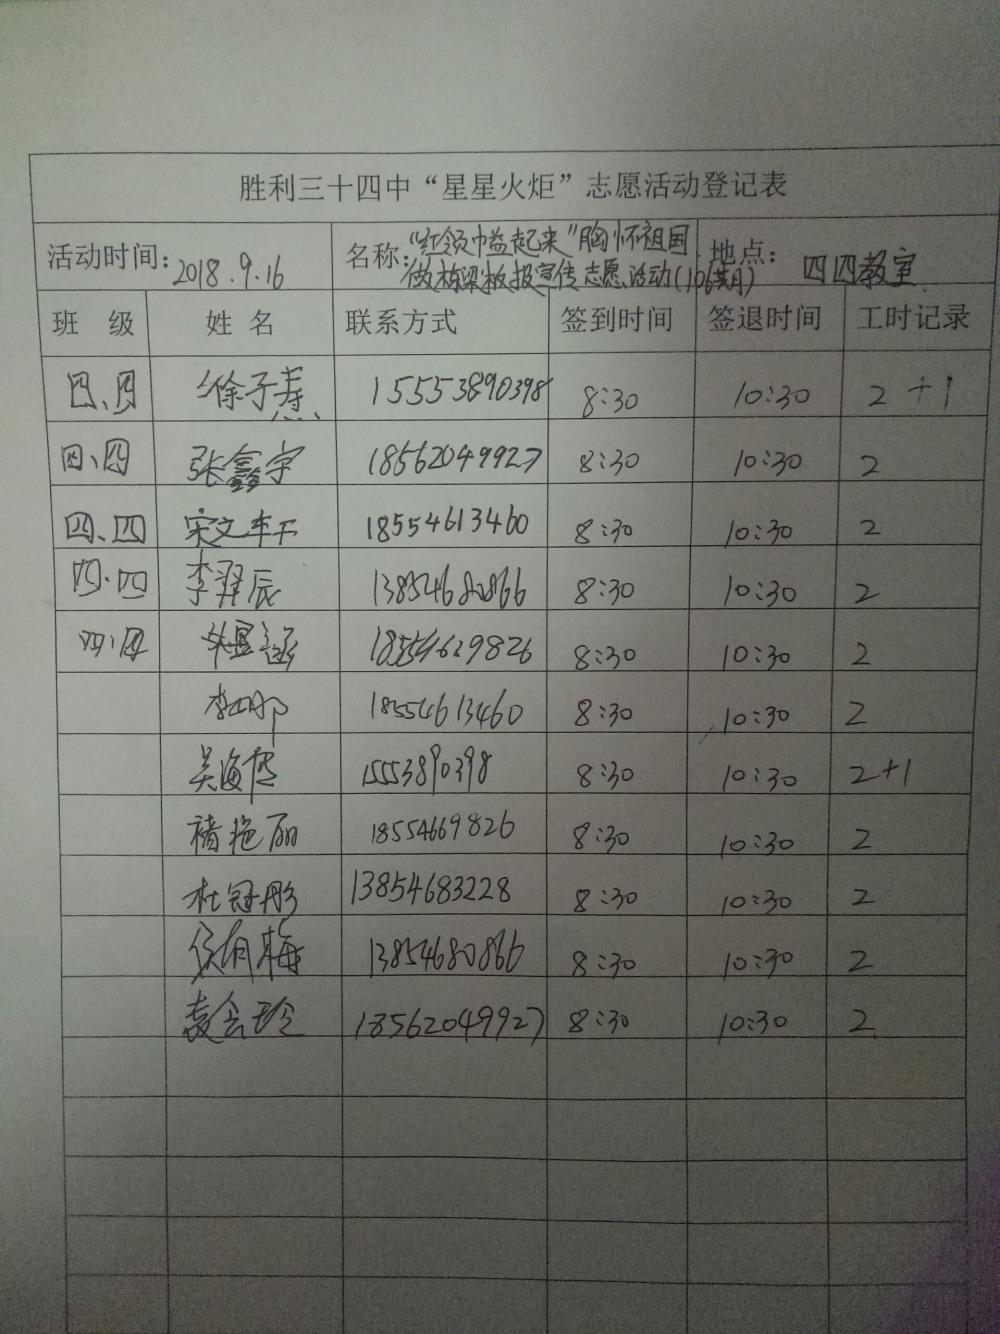 胜利三十四中“星星火炬”志愿活动登记表
活动时间：2018.9.16 名称：“红领巾益起来”胸怀祖国 地点：四四教室
做栋梁板报宣传志愿活动(106期)
班 级 姓 名 联系方式 签到时间 签退时间 工时记录
四、四 徐子焘 15553890398 8:30 10:30 2+1
四、四 张鑫宇 18562049927 8:30 10:30 2
四、四 宋文轩 18554613460 8:30 10:30 2
四、四 李羿辰 13854680866 8:30 10:30 2
四、四 8:30 10:30 2
18554613460 8:30 10:30 2
吴海传 1553890398 8:30 10:30 2+1
褚艳丽 18554669826 8:30 10:30 2
杜冠彤 13854683228 8:30 10:30 2
侯有梅 13854680866 8:30 10:30 2
袁会玲 18562049927 8:30 10:30 2